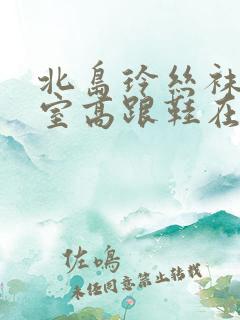 北島玲丝袜
室高跟鞋在
佐鳴
未经同意禁止转载